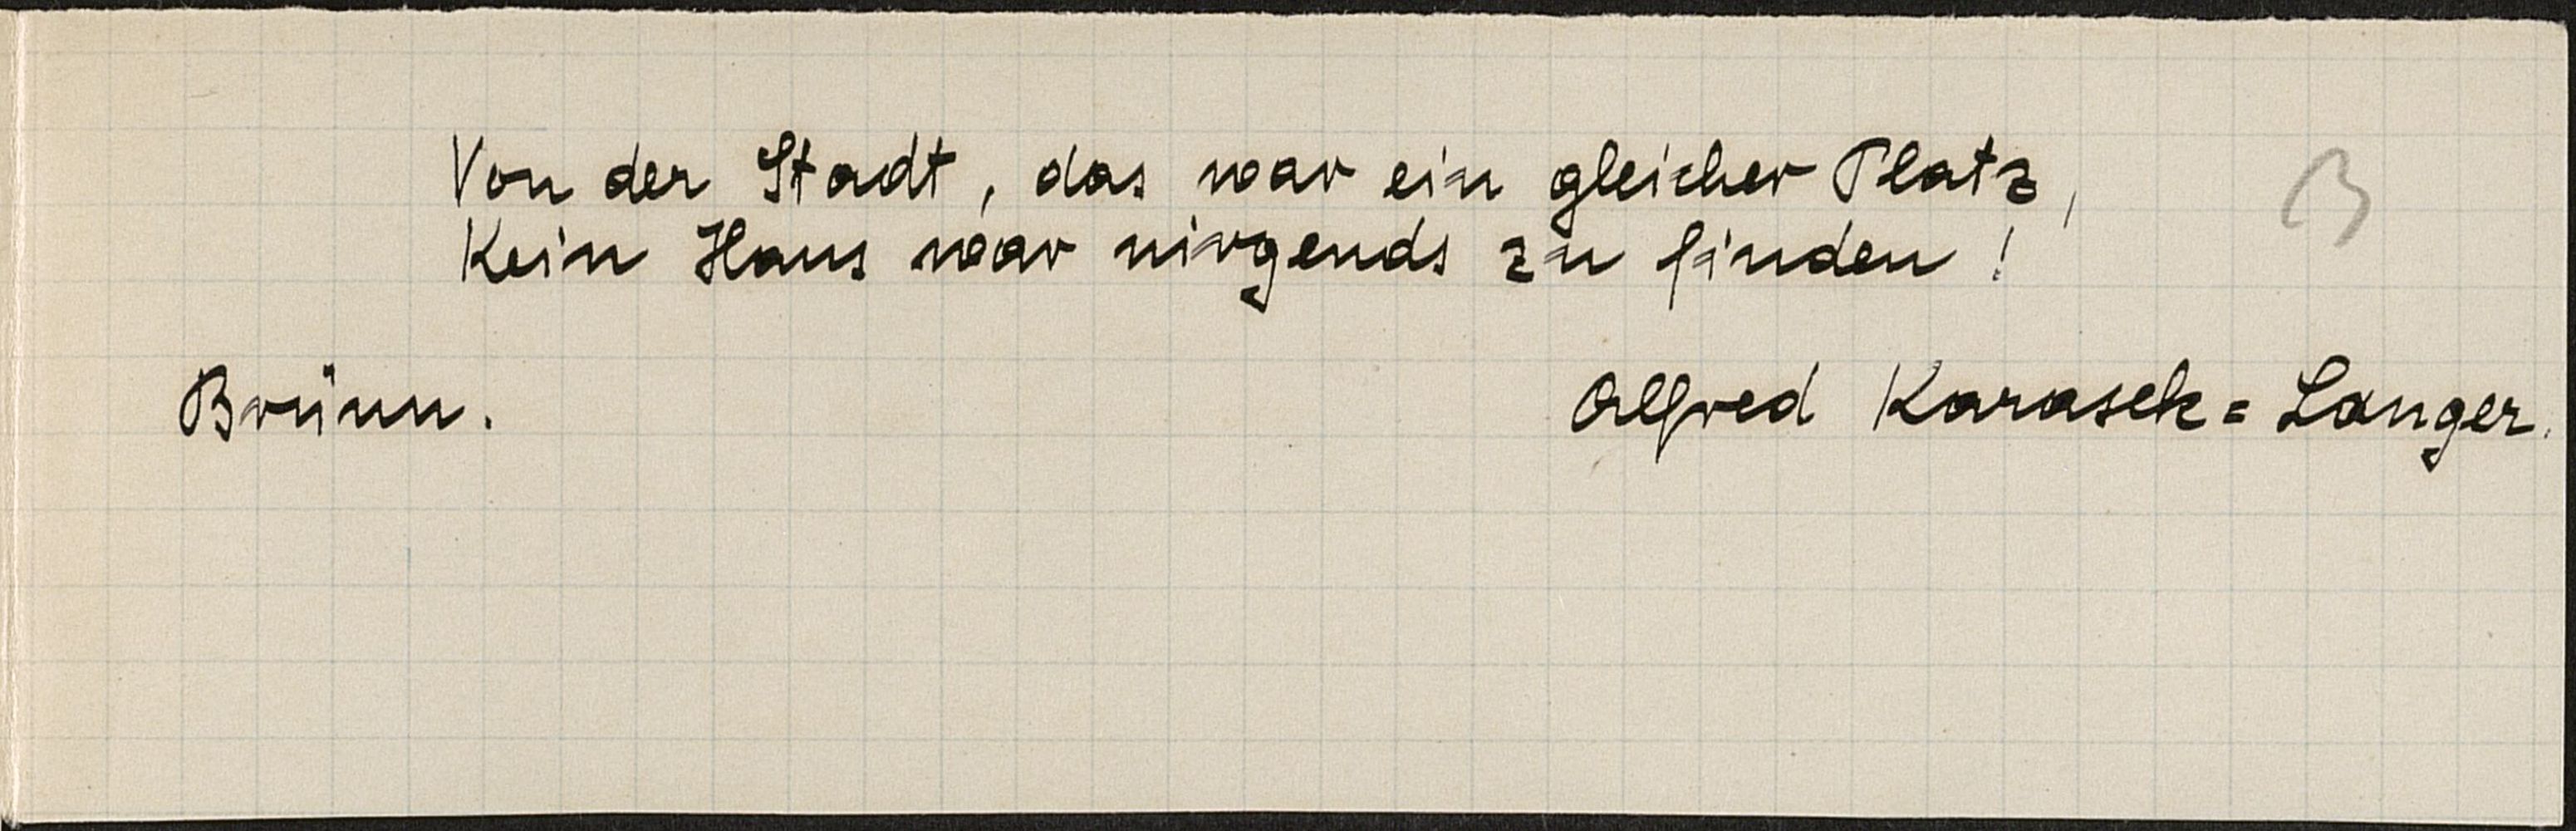 Von der Stadt, das war ein gleicher Platz,
Kein Haus war nirgends zu finden!
B
Brünn. Alfred Karasek=Langer.